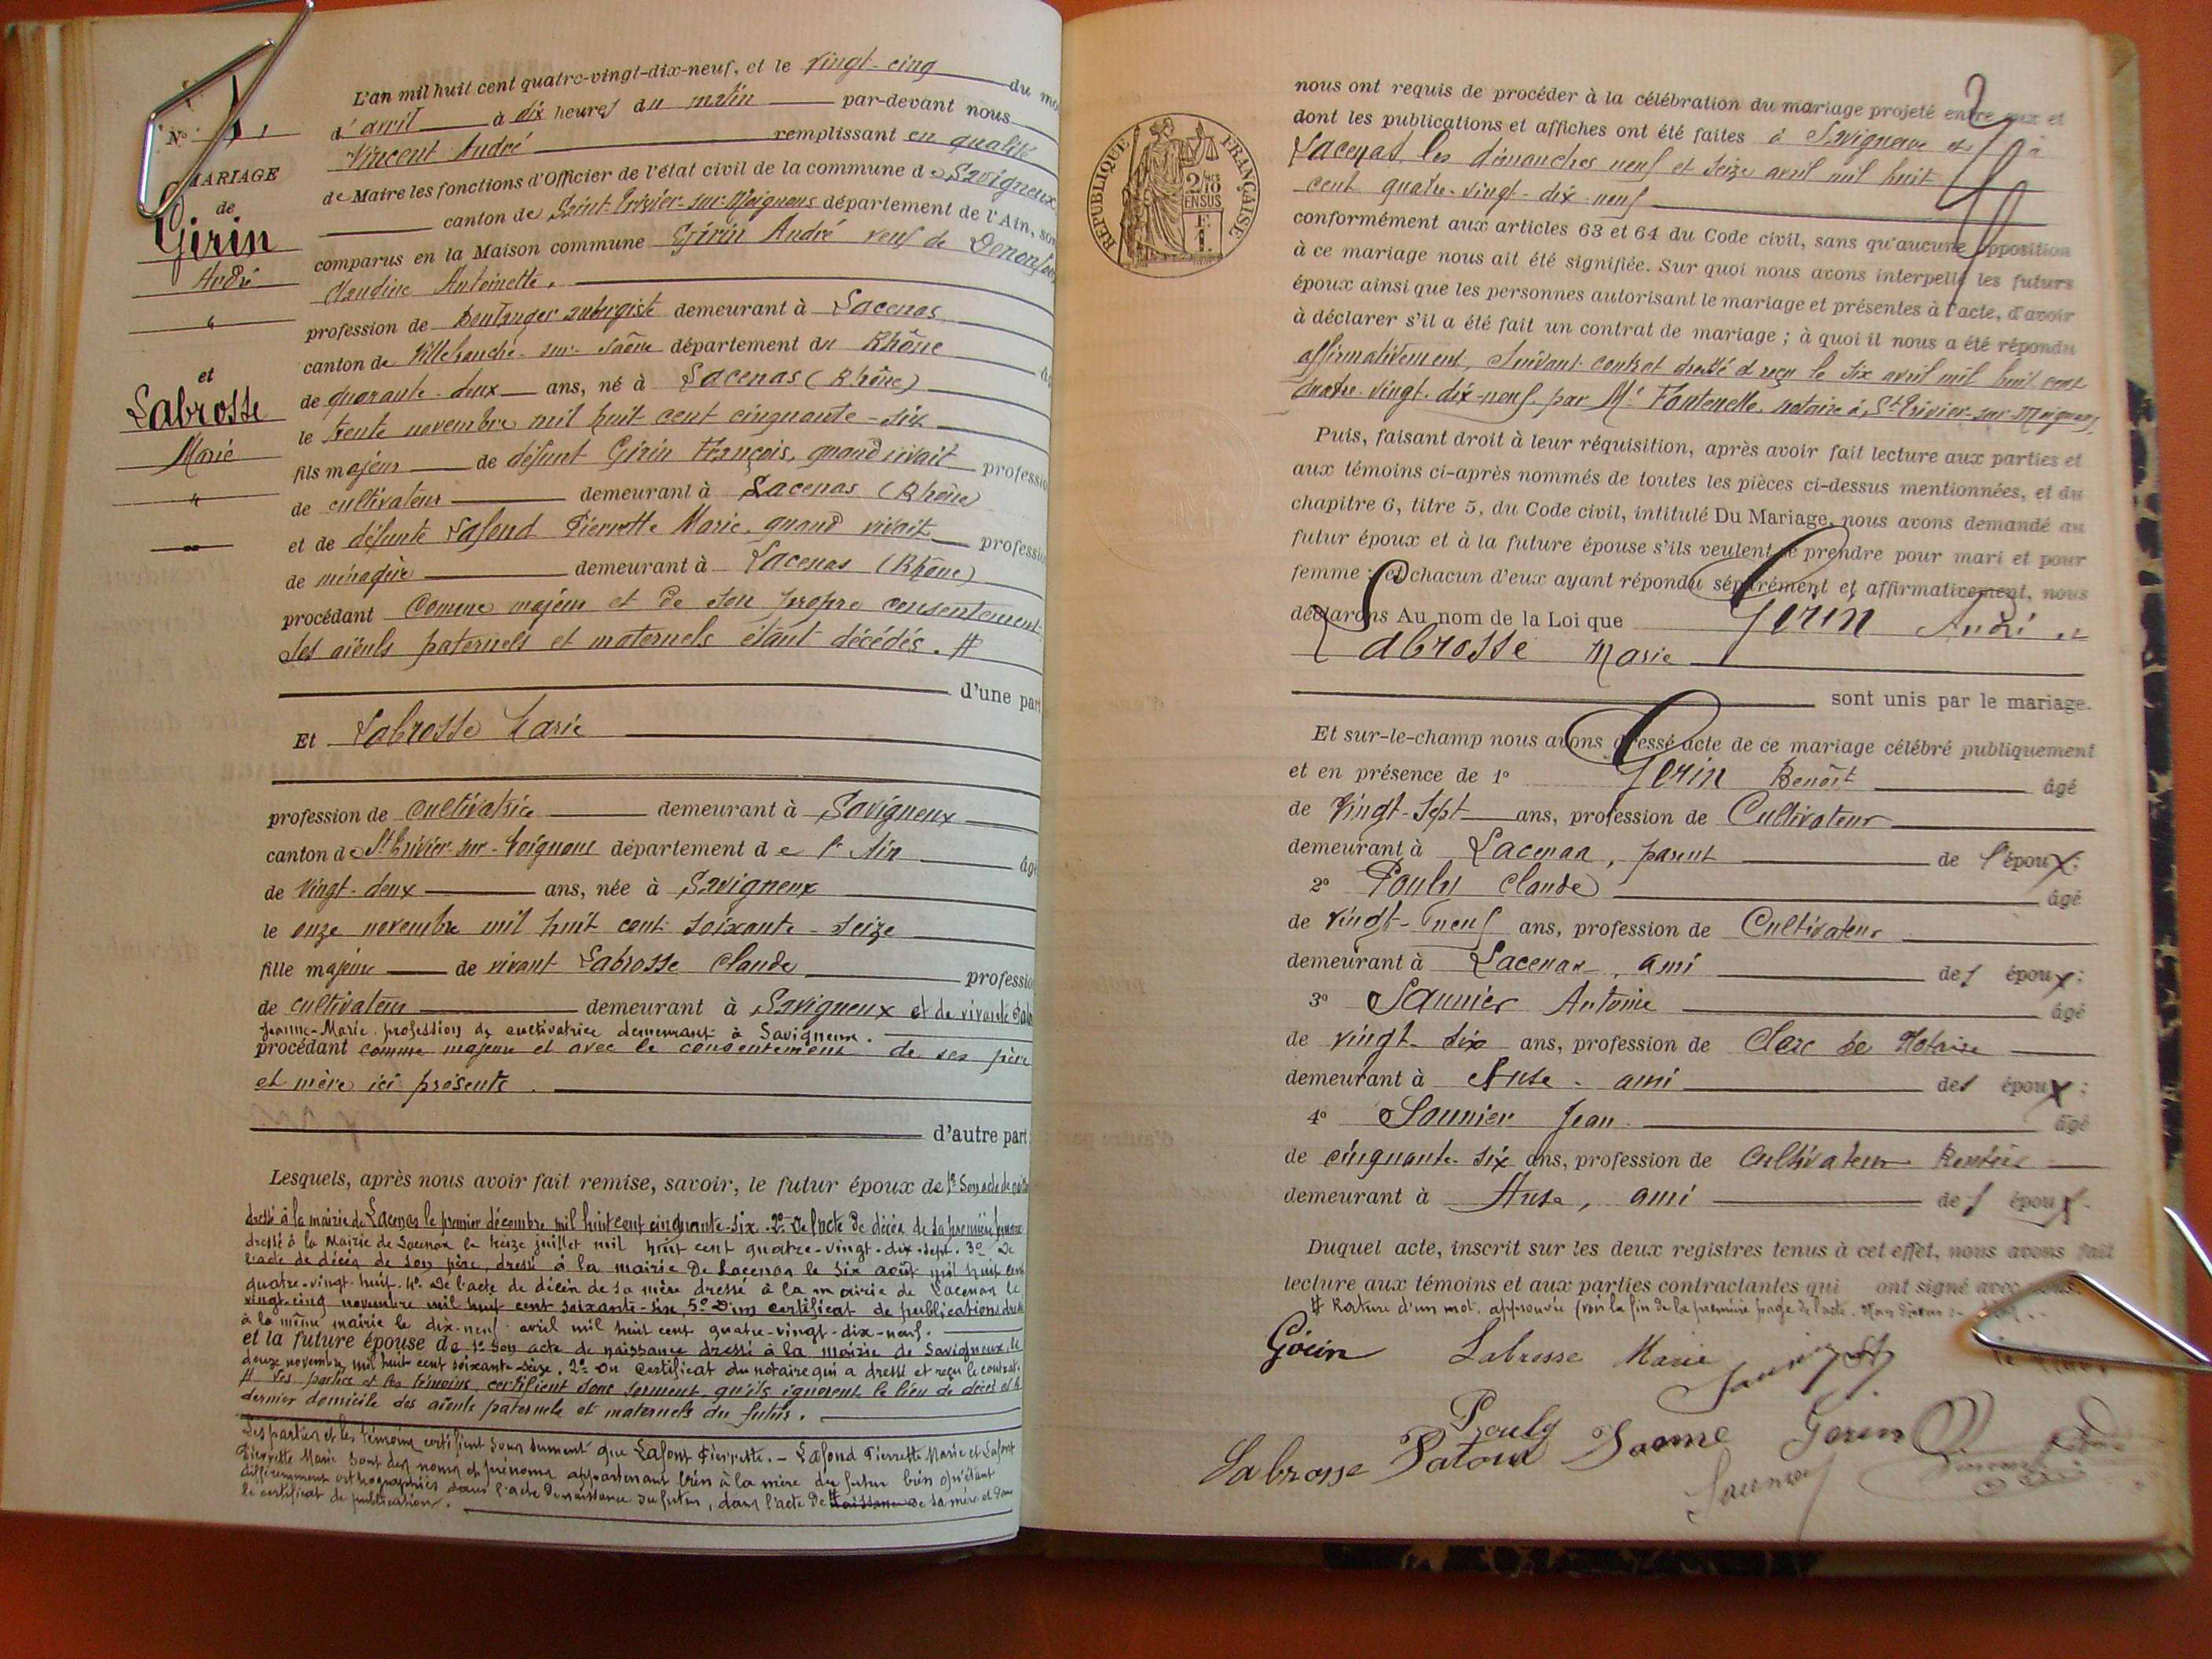 L'an mil huit cent quatre-vingt-dix-neuf, et le vingt-cinq du mo
d'avril à dix heures du matin par-devant nous
Vincent André remplissant en qualité
de Maire les fonctions d'Officier de l'état civil de la commune de Savigneux
canton de Saint-Trivier-sur-Moignans département de l'Ain, son
comparus en la Maison commune Girin André veuf de
Claudine Antoinette,
profession de Boulanger aubergiste demeurant à Lacenas
canton de Villefranche-sur-Saône département du Rhône
de quarante-deux ans, né à Lacenas (Rhône)
le trente novembre mil huit cent cinquante-six
fils majeur de défunt Girin François, quand vivait professio
de cultivateur demeurant à Lacenas (Rhône)
et de défunte Lafond Pierrette Marie, quand vivait professio
de ménagère demeurant à Lacenas (Rhône)
procédant comme majeur et de son propre consentement
ses aïeuls paternels et maternels étant décédés. #
d'une part
Et Labrosse Marie
profession de cultivatrice demeurant à Savigneux
canton de St Trivier-sur-Moignans département de l'Ain âgé
de vingt-deux ans, née à Savigneux
le onze novembre mil huit cent soixante-seize
fille majeure de vivant Labrosse Claude professio
de cultivateur demeurant à Savigneux et de vivante
Jeanne-Marie profession de cultivatrice demeurant à Savigneux.
procédant comme majeure et avec le consentement de ses père
et mère ici présents.
d'autre part:
Lesquels, après nous avoir fait remise, savoir, le futur époux de 1º Son acte de
dressé à la mairie de Lacenas le premier décembre mil huit cent cinquante-six. 2º De l'acte de décès de sa première femme
dressé à la Mairie de Lacenas le treize juillet mil huit cent quatre-vingt-dix-sept. 3º De
l'acte de décès de son père, dressé à la mairie de Lacenas le six août mil huit cent
quatre-vingt-huit. 4º De l'acte de décès de sa mère dressé à la mairie de Lacenas le
vingt-cinq novembre mil huit cent soixante-six, 5º D'un certificat de publications
à la même mairie le dix-neuf avril mil huit cent quatre-vingt-dix-neuf.
et la future épouse de 1º Son acte de naissance dressé à la mairie de Savigneux, le
douze novembre mil huit cent soixante-seize. 2º Du certificat du notaire qui a dressé et reçu le contrat.
# Les parties et les témoins certifient sous serment qu'ils ignorent le lieu de décès et le
dernier domicile des aïeuls paternels et maternels du futur.
Les parties et les témoins certifient sous serment que Lafont Pierrette. – Lafond Pierrette Marie et Lafont
Pierrette Marie sont des noms et prénoms appartenant bien à la mère du futur bien qu'étant
différemment orthographiés dans l'acte de naissance du futur, dans l'acte de naissance de sa mère et dans
le certificat de publication.
Nº
MARIAGE
de
Girin
André
et
Labrosse
Marie
RÉPUBLIQUE FRANÇAISE
nous ont requis de procéder à la célébration du mariage projeté entre eux et
dont les publications et affiches ont été faites à Savigneux et à
Lacenas les dimanches neuf et seize avril mil huit
cent quatre-vingt-dix-neuf
conformément aux articles 63 et 64 du Code civil, sans qu'aucune opposition
à ce mariage nous ait été signifiée. Sur quoi nous avons interpellé les futurs
époux ainsi que les personnes autorisant le mariage et présentes à l'acte, d'avoir
à déclarer s'il a été fait un contrat de mariage ; à quoi il nous a été répondu
affirmativement, suivant contrat dressé et reçu le six avril mil huit cent
quatre-vingt-dix-neuf par Me Fontenelle notaire à St-Trivier-sur-Moignans.
Puis, faisant droit à leur réquisition, après avoir fait lecture aux parties et
aux témoins ci-après nommés de toutes les pièces ci-dessus mentionnées, et du
chapitre 6, titre 5, du Code civil, intitulé Du Mariage, nous avons demandé au
futur époux et à la future épouse s'ils veulent se prendre pour mari et pour
femme ; et chacun d'eux ayant répondu séparément et affirmativement, nous
déclarons Au nom de la Loi que Gerin André et
Labrosse Marie
sont unis par le mariage.
Et sur-le-champ nous avons dressé acte de ce mariage célébré publiquement
et en présence de 1º Gerin Benoît âgé
de vingt-sept ans, profession de Cultivateur
demeurant à Lacenas, parent de l'époux;
2º Pouly Claude âgé
de vingt-neuf ans, profession de Cultivateur
demeurant à Lacenas, ami des époux;
3º Saunier Antoine âgé
de vingt-six ans, profession de Clerc de Notaire
demeurant à Anse, ami des époux;
4º Saunier Jean âgé
de cinquante-six ans, profession de Cultivateur Rentier
demeurant à Anse, ami des époux.
Duquel acte, inscrit sur les deux registres tenus à cet effet, nous avons fait
lecture aux témoins et aux parties contractantes qui ont signé avec nous.
# Rature d'un mot, approuvée (voir la fin de la première page de l'acte.
Girin Labrosse Marie
Pouly
Labrosse Gerin
Saunier